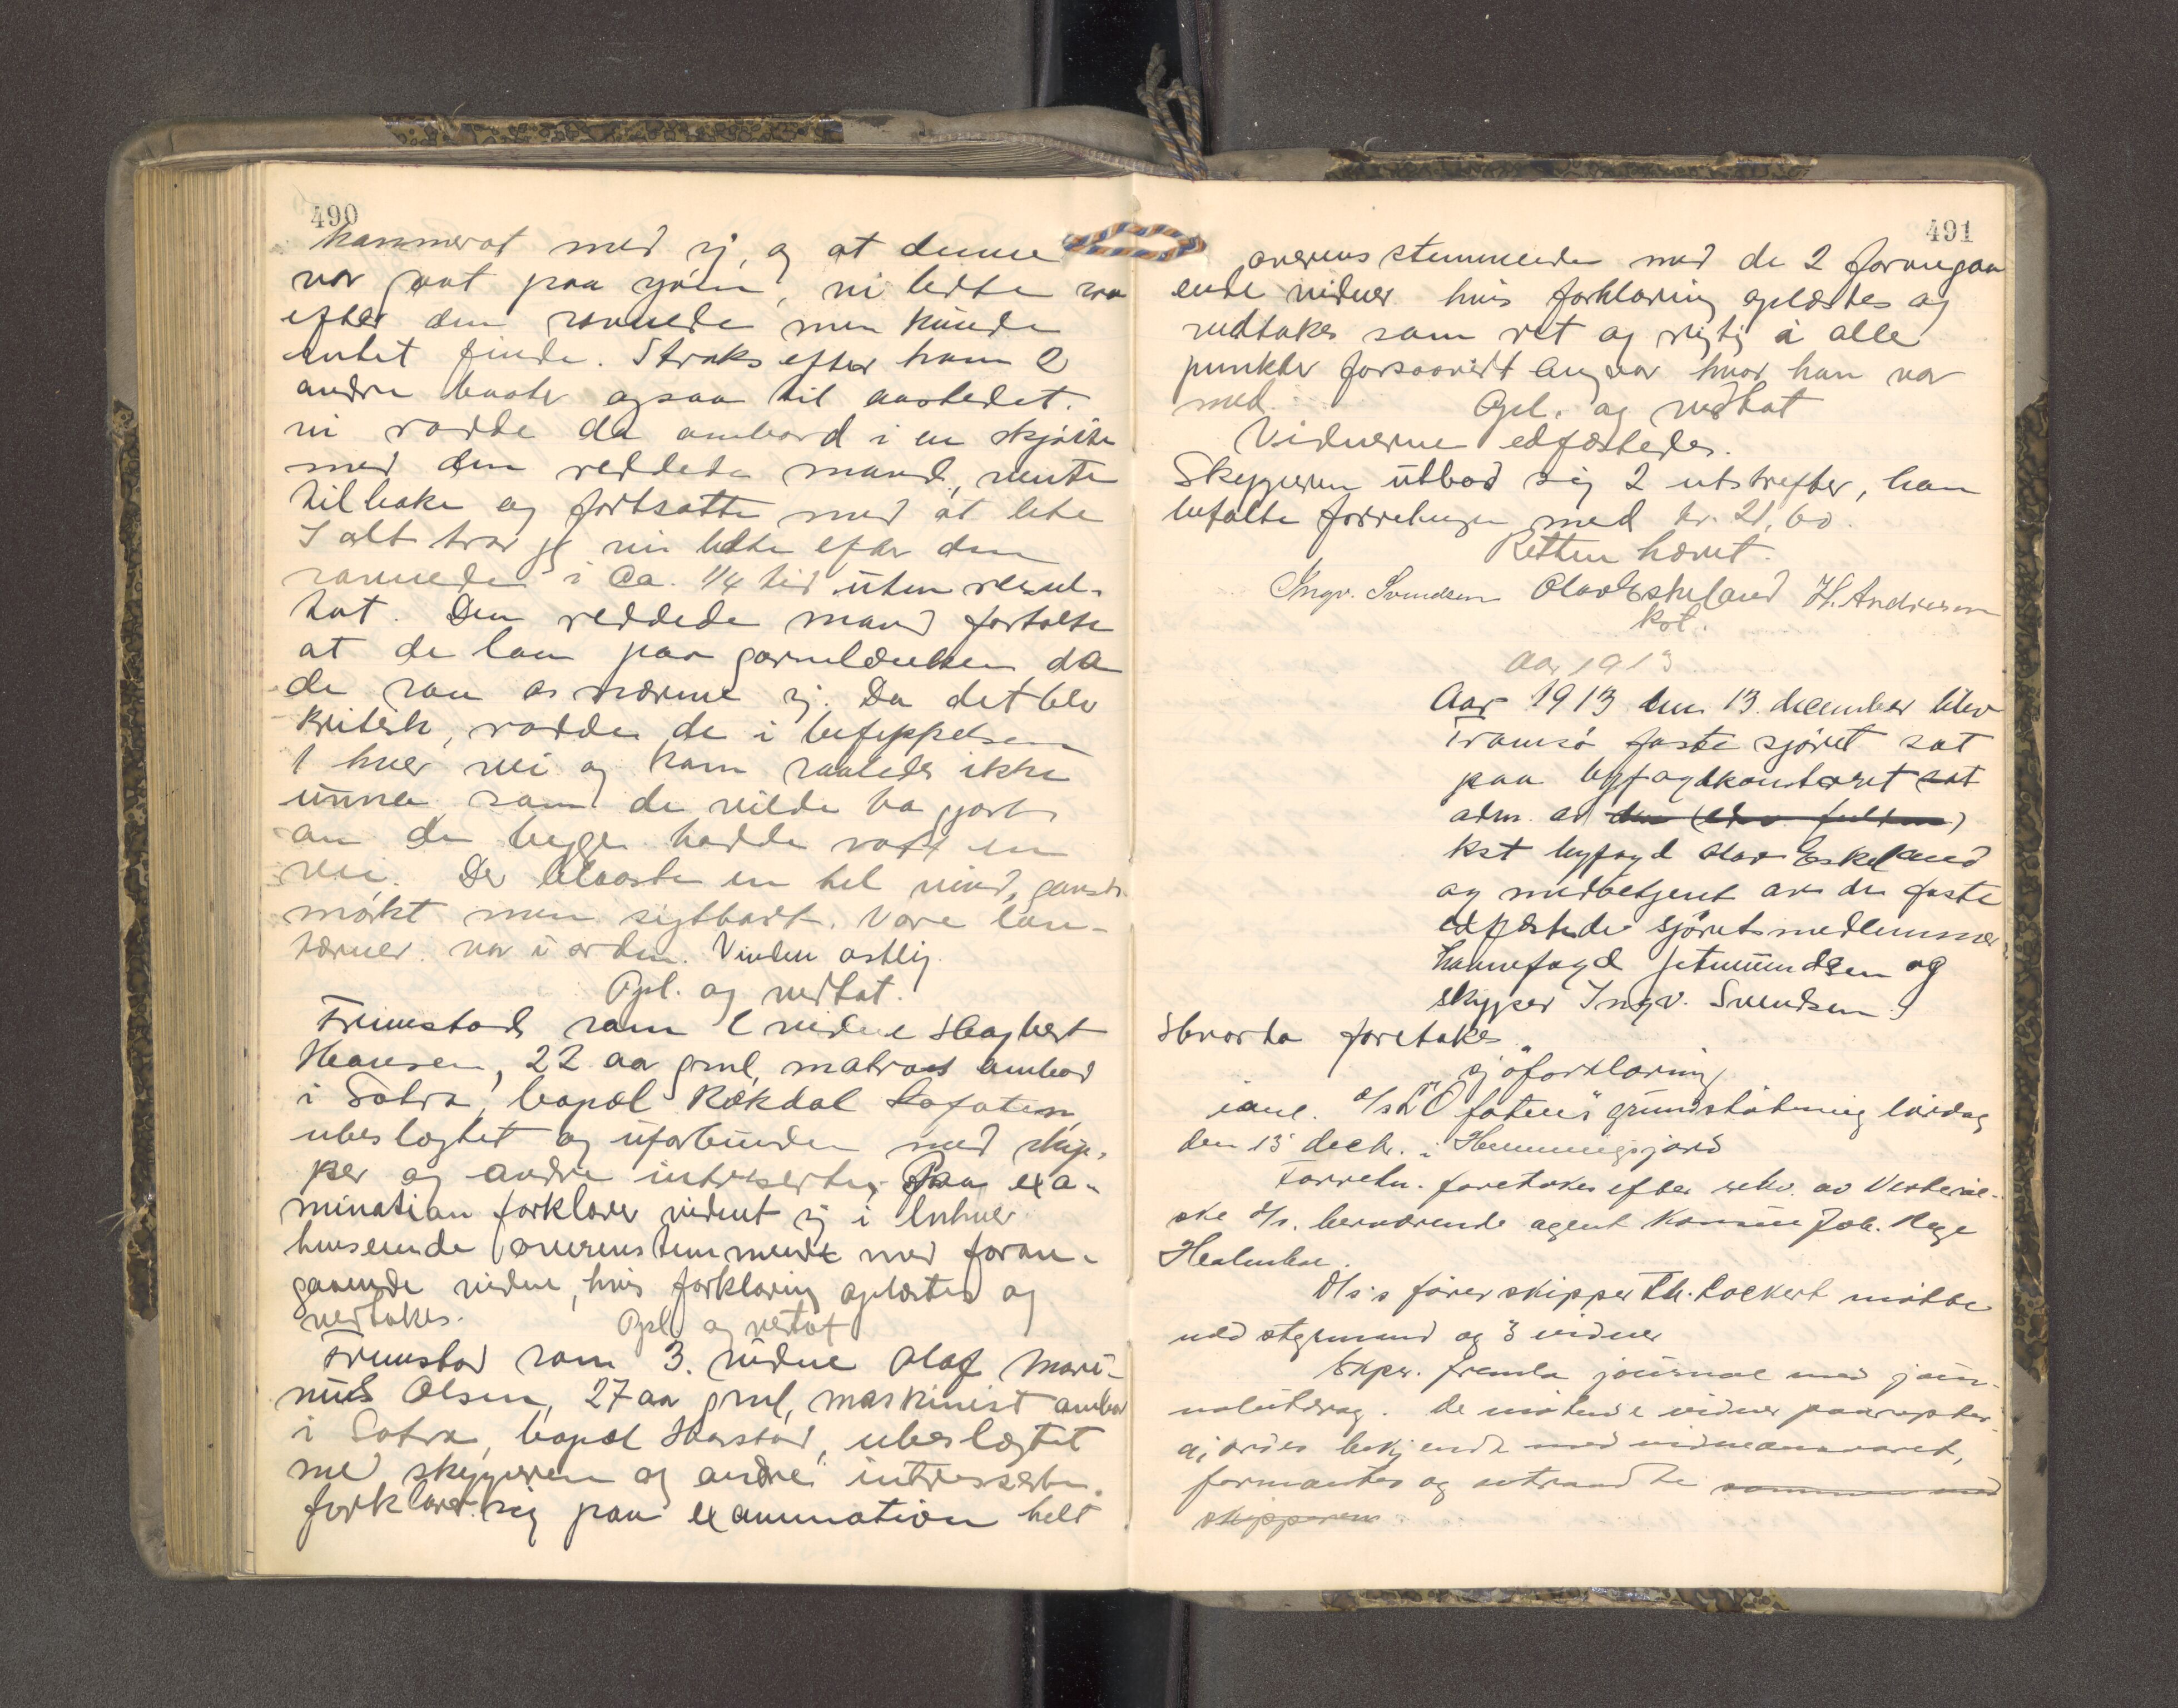 490
kammerat med sig, og at denne
var gaat paa sjöen, vi ledte saa
efter den savnede men kunde
intet finde. Straks efter kom 2
andre baater ogsaa til aastedet.
vi rodde da ombord i en skjöite
med den reddede mand, vendte
tilbake og fortsatte med at lete
I alt tror jeg vi ledte efter den
savnede i Ca. 1/4 tid uten resul-
tat. Den reddede mand fortalte
at de laa paa garnlænken da
de saa os nærme sig. Da det blev
kritisk, rodde de i befippelsen
1 hver vei og kom saaledes ikke
unna som de vilde ha gjort
om de begge hadde rodd en
vei. Der blaaste en hel vind, ganske
mörkt men sigtbart. Vore lan-
terner var i orden. Vinden ostlig.
Opl. og vedtat.
Fremstod som 2 vidne Hagbert
Hansen, 22 aar gml, matros ombord
i Sotra, bopæl Rekdal Lofoten,
ubeslegtet og uforbunden med skip-
per og andre interserte. Paa exa-
mination forklarer vidnet sig i enhver
henseende overenstemmende med foran-
gaaende vidne, hvis forklaring oplæstes og
vedtokes. Opl. og vedtat
Fremstod som 3. vidne Olaf Mari-
nius Olsen, 27 aar gml, maskinist ombord
i Sotra, bopæl Harstad, ubeslegtet
med skipperen og andre intresserte.
forklaret sig paa examination helt
491
overensstemmende med de 2 foregaa
ende vidner hvis forklaring oplæstes og
vedtokes som ret og rigtig i alle
punkter forsaavidt angaar hvor han var
med. Opl. og vedtat
Vidnerne edfæstedes.
Skipperen utbad sig 2 utskrifter, han
betalte forretningen med kr. 21,60.
Retten hævet.
Ingv. Svendsen Olav Eskeland H. Andresen
kst.
Aar 1913
Aar 1913 den 13. december blev
Tromsö faste sjöret sat
paa byfogdkontoret sat
adm. av den
kst byfogd Olav Eskeland
og medbetjent av de faste
edfæstede sjöretsmedlemmer
havnefogd Jetmundsen og
skipper Ingv. Svendsen.
Hvorda foretokes
sjöforklaring
i anl. D/s "Lofoten"s grundstötning lördag
den 13 decbr. i Hemmingsfjord
Forretn. foretokes efter rekv. av Vesteraal-
ske D/s. herværende agent Konsul Joh. Rye
Holmboe.
D/s's förer skipper Th. Lockert mötte
med styrmand og 3 vidner
Skpr. fremla journal med jour-
nalutdrag. De mötende vidner paaropter
gjordes bekjendt med vidneansvaret,
formantes og uttraadte sammen med
skipperen.